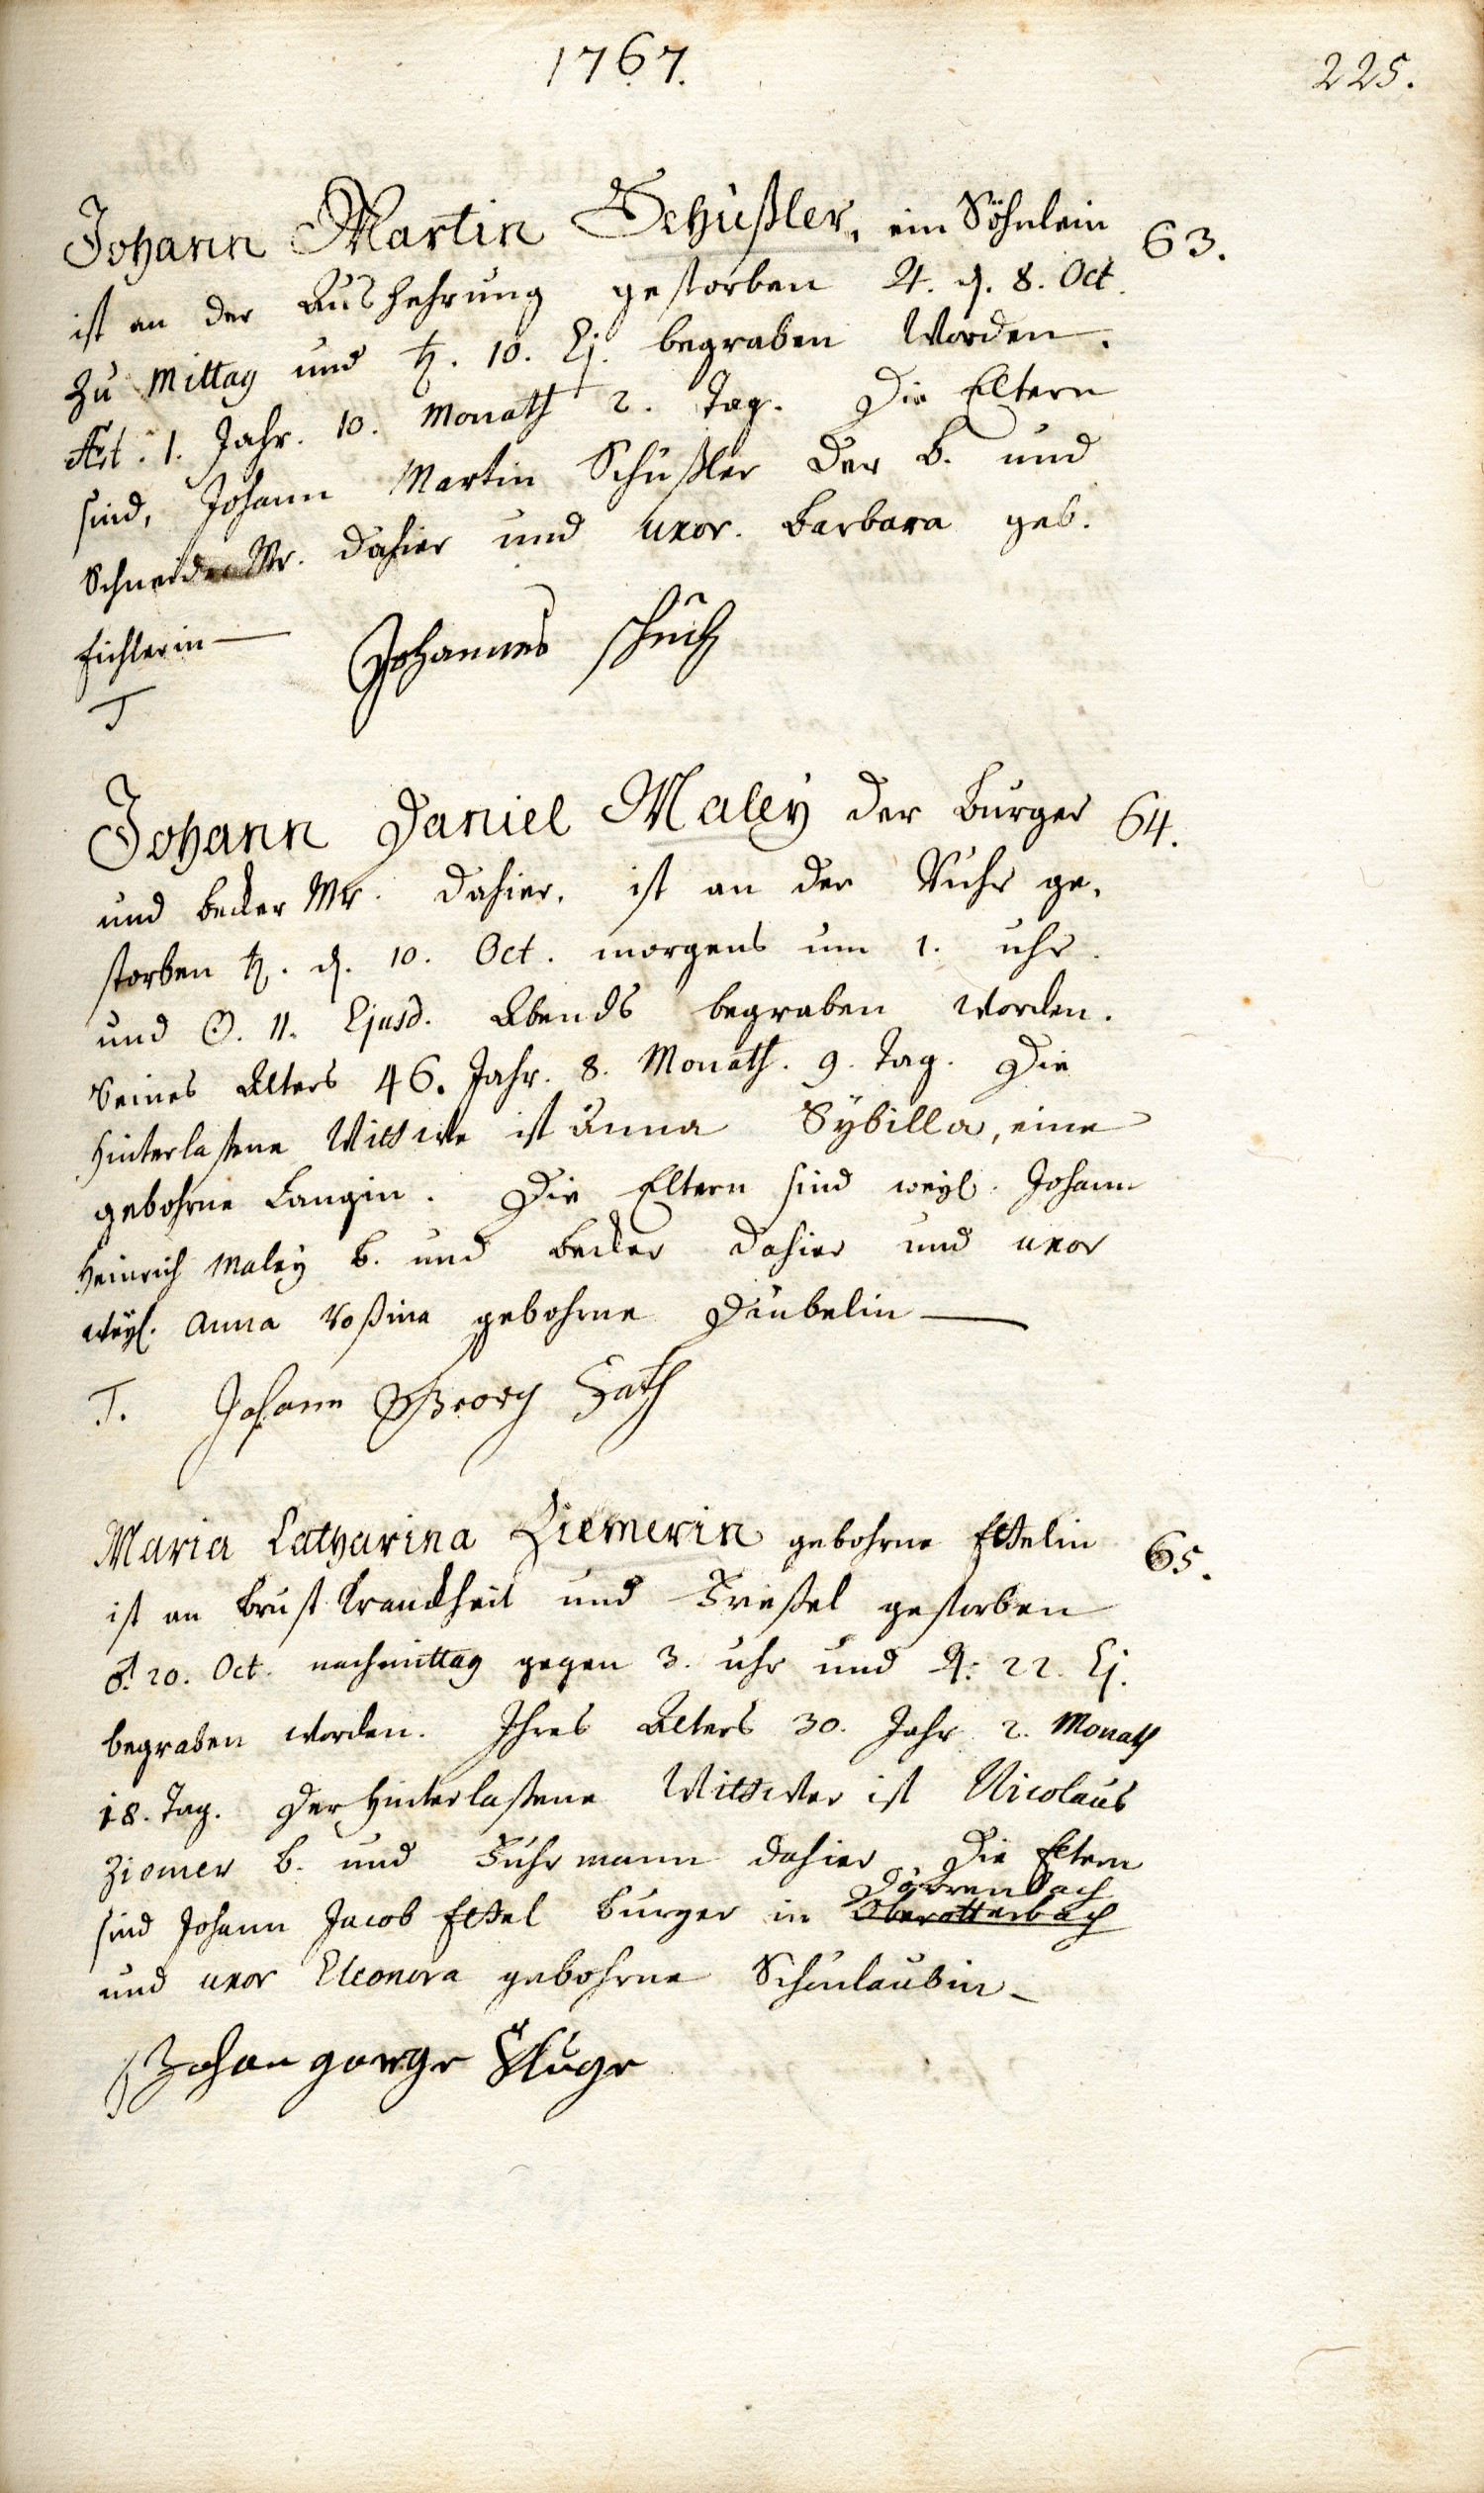 1767.
225.
Johann Martin Schüßler, ein Söhnlein 63.
ist an der Auszehrung gestorben ♃. d. 8. Oct.
zu Mittag und ♄. 10. Ej. begraben worden.
Æt. 1. Jahr. 10. Monath 2. Tag. Die Eltern
sind, Johann Martin Schüßler der B. und
Schneider Mr. dahier und uxor. Barbara geb.
Eichlerin —
Johannes
T
Johann Daniel Maleÿ der Burger 64.
und Becker Mr. dahier, ist an der Ruhr ge,
storben ♄. d. 10. Oct. morgens um 1. uhr.
und ☉. 11. Ejusd. Abends begraben worden.
Seines Alters 46. Jahr. 8. Monath. 9. Tag. Die
Hinterlaßene Wittwe ist Anna Sÿbilla, eine
gebohrne Langin. Die Eltern sind weyl. Johann
Heinrich Maleÿ B. und Becker dahier und uxor
weÿl. Anna Roßina gebohrne Däubelin —
T. Johann Georg Hath
Maria Catharina Ziemerin gebohrne Ettelin 65.
ist an Brust Kranckheit und Frießel gestorben
♂. 20. Oct. nachmittag gegen 3. uhr und ♃. 22. Ej.
begraben worden. Ihres Alters 30. Jahr 2. Monath
18. Tag. Der Hinterlaßene Wittwer ist Nicolaus
Ziemer B. und Fuhrmann dahier Die Eltern
Dörrenbach
sind Johann Jacob Ettel Burger in Oberotterbach
und uxor Eleonora gebohrne Schönlaubin —
Johan gorge Kluge